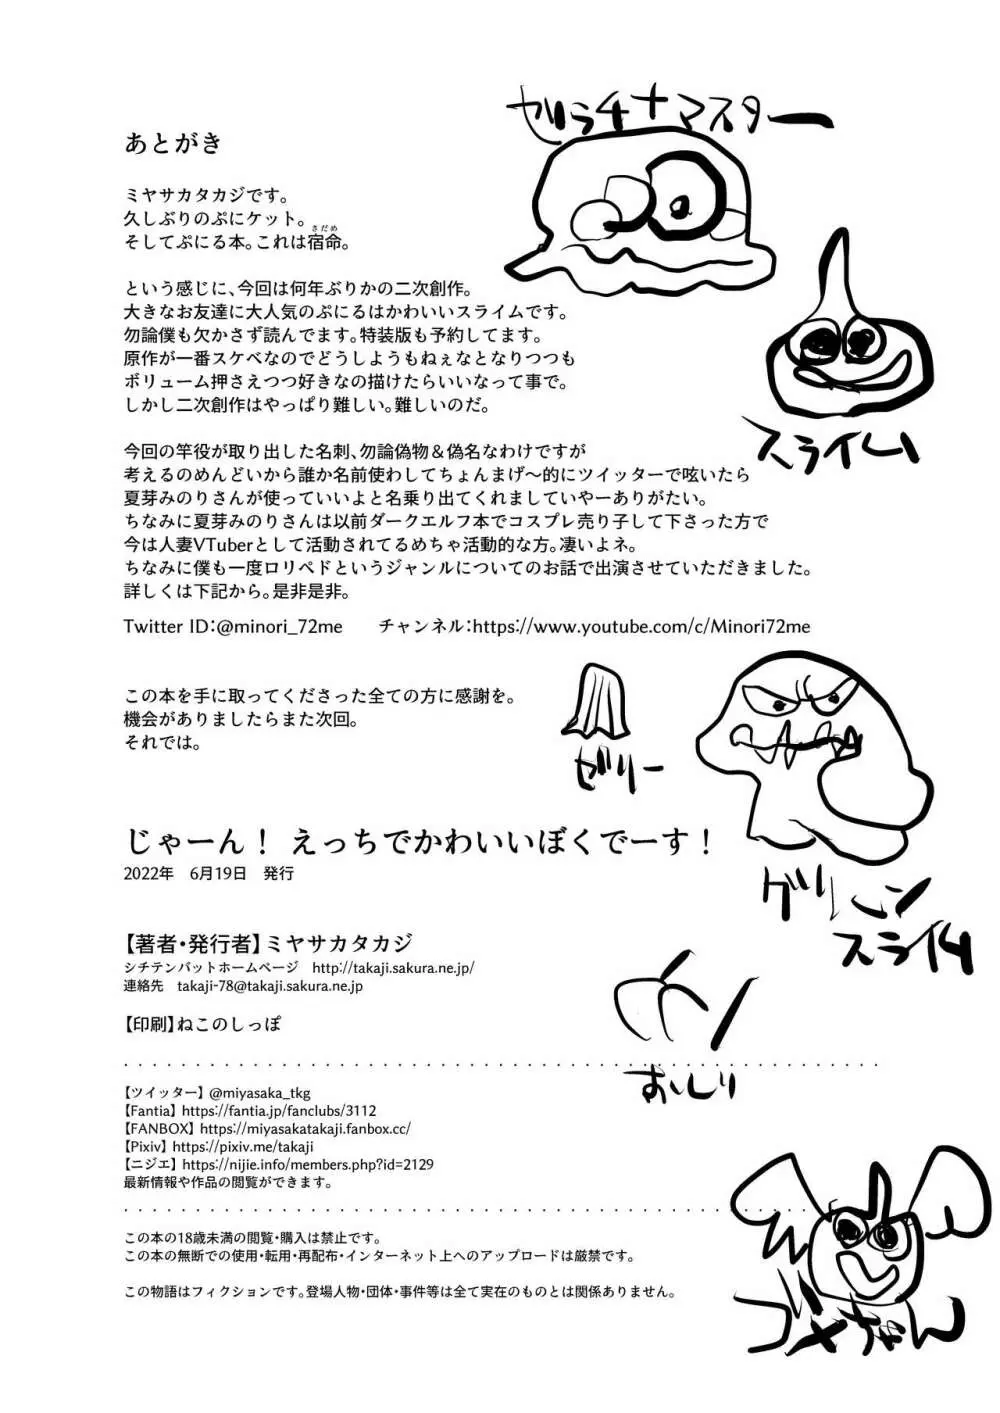 ゼラチナマスター
あとがき
ミヤサカタカジです。
久しぶりのぷにケット。
そしてぷにる本。これは宿命(さだめ)。
という感じに、今回は何年ぶりかの二次創作。
大きなお友達に大人気のぷにるはかわいいスライムです。
勿論僕も欠かさず読んでます。特装版も予約してます。
原作が一番スケベなのでどうしようもねぇなとなりつつも
ボリューム押さえつつ好きなの描けたらいいなって事で。
しかし二次創作はやっぱり難しい。難しいのだ。
スライム
今回の竿役が取り出した名刺、勿論偽物＆偽名なわけですが
考えるのめんどいから誰か名前使わしてちょんまげ～的にツイッターで呟いたら
夏芽みのりさんが使っていいよと名乗り出てくれましていやーありがたい。
ちなみに夏芽みのりさんは以前ダークエルフ本でコスプレ売り子して下さった方で
今は人妻VTuberとして活動されてるめちゃ活動的な方。凄いよネ。
ちなみに僕も一度ロリペドというジャンルについてのお話で出演させていただきました。
詳しくは下記から。是非是非。
Twitter ID：@minori_72me　　チャンネル：https://www.youtube.com/c/Minori72me
この本を手に取ってくださった全ての方に感謝を。
機会がありましたらまた次回。
それでは。
ゼリー
じゃーん！ えっちでかわいいぼくでーす！
2022年　6月19日　発行
グリーン
スライム
【著者・発行者】ミヤサカタカジ
シチテンバットホームページ　http://takaji.sakura.ne.jp/
連絡先　takaji-78@takaji.sakura.ne.jp
【印刷】ねこのしっぽ
おしり
【ツイッター】@miyasaka_tkg
【Fantia】https://fantia.jp/fanclubs/3112
【FANBOX】https://miyasakatakaji.fanbox.cc/
【Pixiv】https://pixiv.me/takaji
【ニジエ】https://nijie.info/members.php?id=2129
最新情報や作品の閲覧ができます。
この本の18歳未満の閲覧・購入は禁止です。
この本の無断での使用・転用・再配布・インターネット上へのアップロードは厳禁です。
この物語はフィクションです。登場人物・団体・事件等は全て実在のものとは関係ありません。
ゴメちゃん